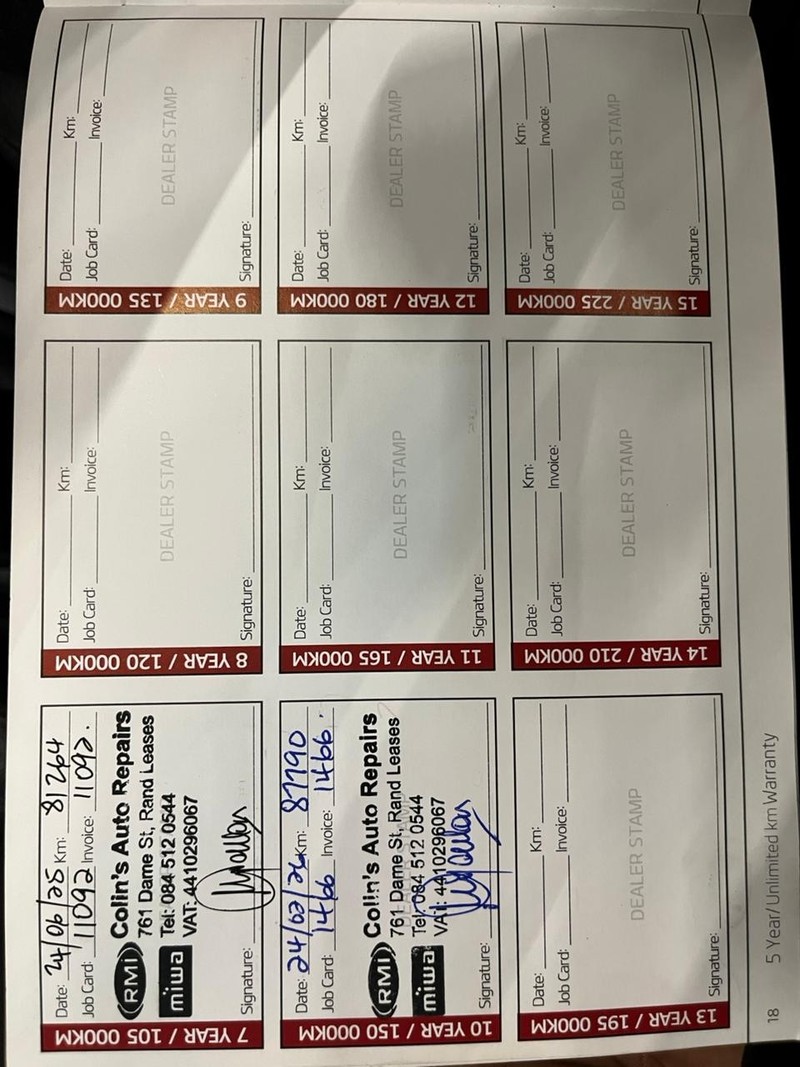 7 YEAR / 105 000KM
Date: 24/06/25 Km: 81264
Job Card: 11092 Invoice: 11092.
RMI Colin's Auto Repairs
761 Dame St, Rand Leases
miwa Tel: 084 512 0544
VAT: 4410296067
Signature:
8 YEAR / 120 000KM
Date: Km:
Job Card: Invoice:
DEALER STAMP
Signature:
9 YEAR / 135 000KM
Date: Km:
Job Card: Invoice:
DEALER STAMP
Signature:
10 YEAR / 150 000KM
Date: 24/02/26 Km: 87790
Job Card: 1466 Invoice: 1466.
RMI Colin's Auto Repairs
761 Dame St, Rand Leases
miwa Tel: 084 512 0544
VAT: 4410296067
Signature:
11 YEAR / 165 000KM
Date: Km:
Job Card: Invoice:
DEALER STAMP
Signature:
12 YEAR / 180 000KM
Date: Km:
Job Card: Invoice:
DEALER STAMP
Signature:
13 YEAR / 195 000KM
Date: Km:
Job Card: Invoice:
DEALER STAMP
Signature:
14 YEAR / 210 000KM
Date: Km:
Job Card: Invoice:
DEALER STAMP
Signature:
15 YEAR / 225 000KM
Date: Km:
Job Card: Invoice:
DEALER STAMP
Signature:
18 5 Year/Unlimited km Warranty